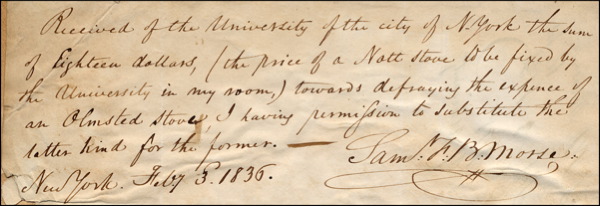 Received of the University of the city of N. York the sum
of Eighteen dollars, (the price of a Nott stove to be fixed by
the University in my room,) towards defraying the expence of
an Olmsted stove, I having permission to substitute the
latter kind for the former. —
Saml. F. B. Morse.
New York. Feby 3. 1836.